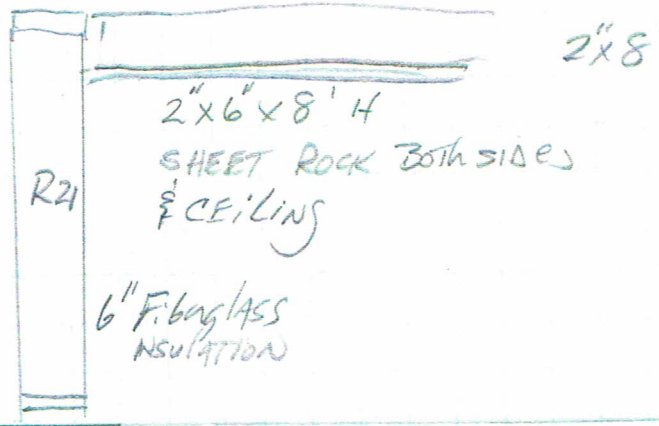 2"x8
2"x6"x8' H
SHEET ROCK Both SIDES
& CEILING
R21
6" Fiberglass
INSULATION